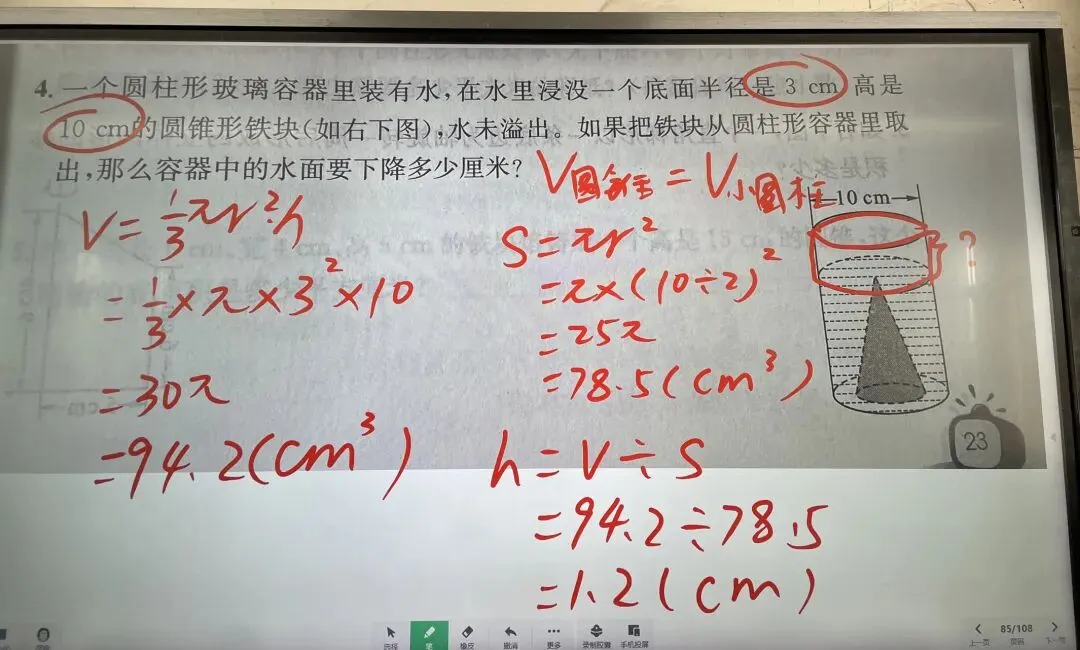 4. 一个圆柱形玻璃容器里装有水,在水里浸没一个底面半径是 3 cm 高是
10 cm的圆锥形铁块(如右下图),水未溢出。如果把铁块从圆柱形容器里取
出,那么容器中的水面要下降多少厘米?
V圆锥=V小圆柱
10 cm
?
V=1/3πr²·h
=1/3×π×3²×10
=30π
=94.2(cm³)
S=πr²
=π×(10÷2)²
=25π
=78.5(cm³)
h=V÷S
=94.2÷78.5
=1.2(cm)
23
选择 笔 橡皮 撤消 更多 录制胶囊 手机投屏
上一页 85/108 页码 下一页